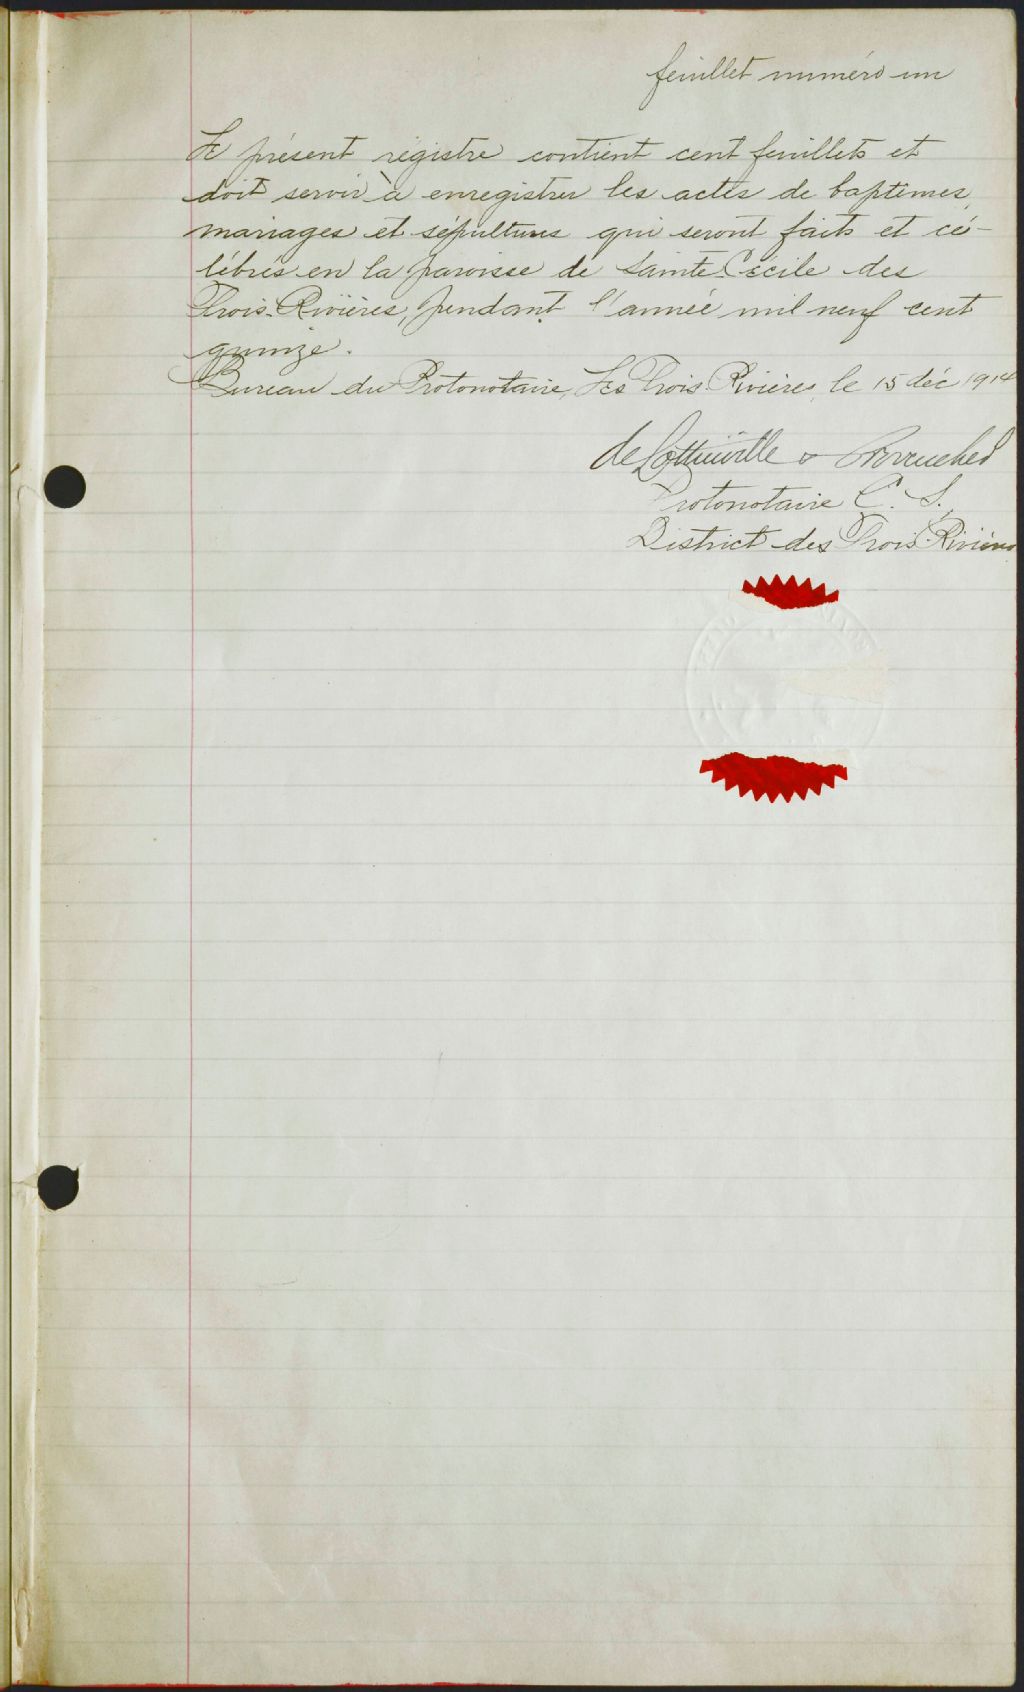 feuillet numéro un
Le présent régistre contient cent feuillets et
doit servir à enregistrer les actes de baptêmes,
mariages et sépultures qui seront faits et cé-
lébrés en la paroisse de Sainte-Cécile des
Trois-Rivières, pendant l'année mil neuf cent
quinze.
Bureau du Protonotaire, Les Trois-Rivières, le 15 déc 1914
de Lottinville &
Protonotaire C. S.
District des Trois-Rivières